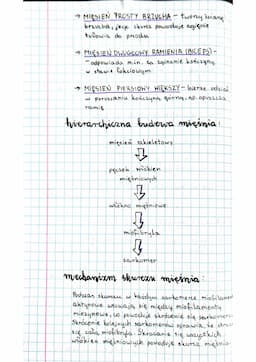 → MIĘSIEŃ PROSTY BRZUCHA - tworzy ścianę
brzucha, jego skurcz powoduje zgięcie
tułowia do przodu
→ MIĘSIEŃ DWUGŁOWY RAMIENIA (BICEPS) -
- odpowiada m.in. za zginanie kończyny
w stawie łokciowym
→ MIĘSIEŃ PIERSIOWY WIĘKSZY - bierze udział
w poruszaniu kończyną górną, np. opuszcza
ramię
hierarchiczna budowa mięśnia:
mięsień szkieletowy
pęczek włókien
mięśniowych
włókno mięśniowe
miofibryla
sarkomer
mechanizm skurczu mięśnia:
Podczas skurczu w każdym sarkomerze miofilamenty
aktynowe wsuwają się między miofilamenty
miozynowe, co powoduje skrócenie się sarkomeru.
Skrócenie kolejnych sarkomerów sprawia, że
się cała miofibryla. Skracanie się wszystkich
włókien mięśniowych powoduje skurcz mięśnia